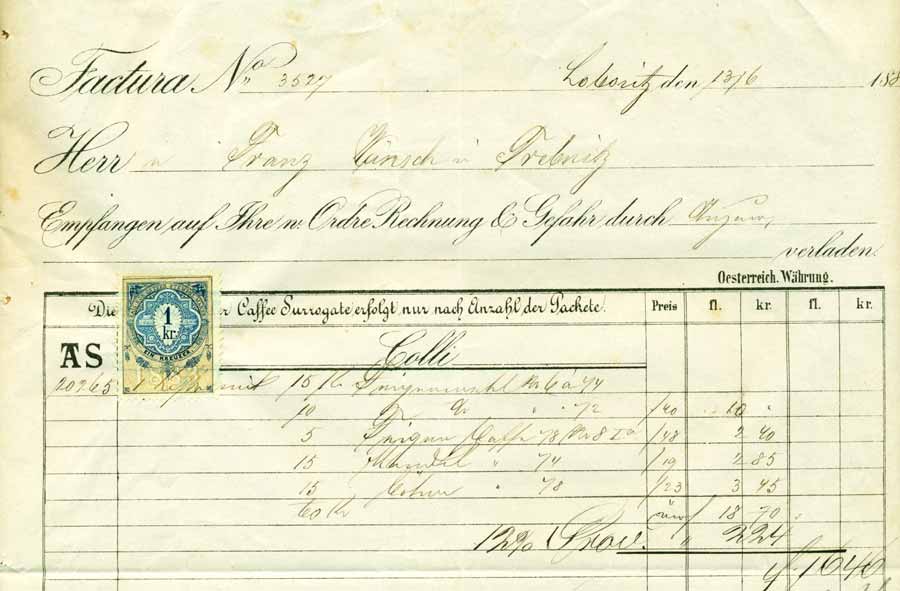 Factura No 3527 Lobositz den 13/6 188
Herrn Franz Wünsch in Trebnitz
Empfangen auf Ihre w. Ordre Rechnung & Gefahr durch
verladen.
Oesterreich. Währung.
Die Caffee Surrogate erfolgt nur nach Anzahl der Packete. Preis fl. kr. fl. kr.
1 kr.
EIN KREUZER
AS Colli
20265 1 15 Ko 6 a 74
10 " 72 /40 10 "
5 78 /48 2 40
15 Mandel " 74 /19 2 85
15 " 78 /23 3 45
60 Ko 18 70
12% Prov. " 2 24
16 46